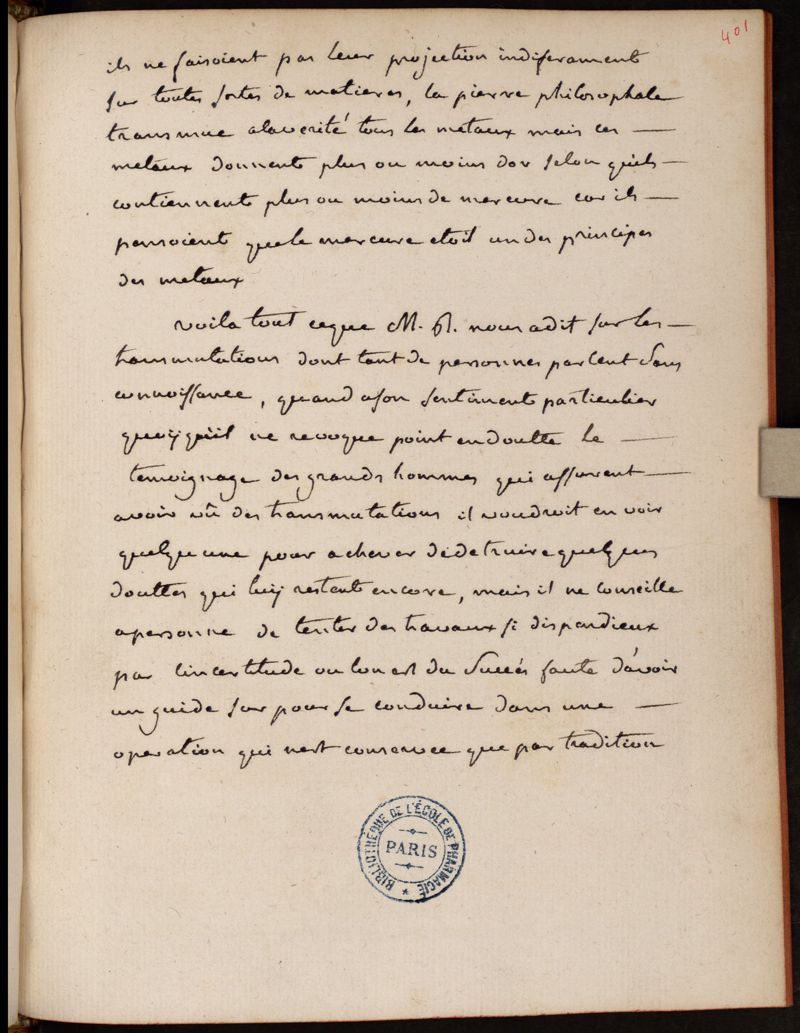 401
ils ne faisoient pas leur projection indiferament
sur toutes sortes de matieres, la pierre philosophale
transmue alaverité tous les metaux mais ces —
metaux donnent plus ou moins dor selon quils —
contiennent plus ou moins de mercure car ils —
pensoient que le mercure etoit un des principes
des metaux
voila tout ceque M. R. nous adit sur les —
transmutations dont tant de personnes parlent sans
connoissance, quand ason sentiment particulier
quoyquil ne revoque point endoutte le —
temoignage des grands hommes qui assurent —
avoir vû des transmutations il voudroit en voir
quelqu'une pour achever dedetruire quelques
douttes qui luy restent encore, mais il ne conseille
apersonne de tenter des travaux si dispendieux
par lincertitude ou lon est du succés faute d'avoir
un guide sur pour se conduire dans une —
operation qui nest conservee que par tradition
BIBLIOTHÈQUE DE L'ÉCOLE DE PHARMACIE
PARIS